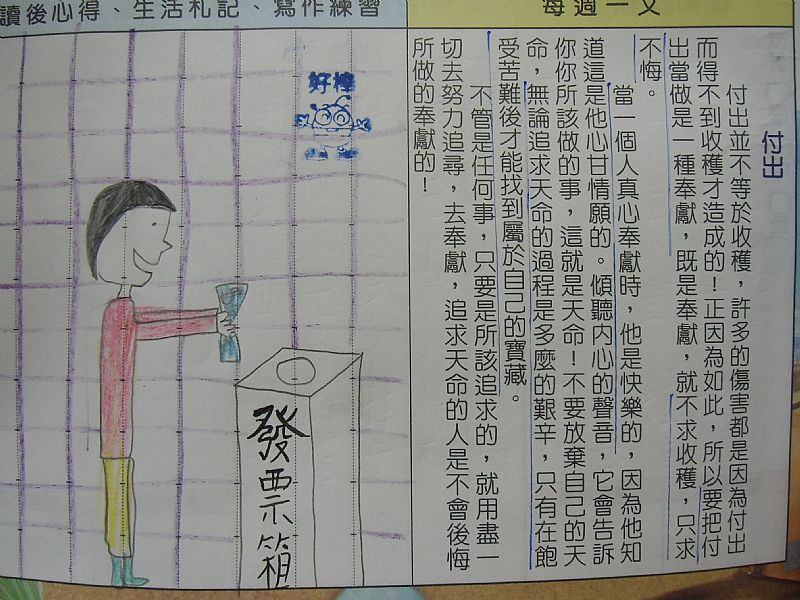 每週一文
付出
付出並不等於收穫，許多的傷害都是因為付出
而得不到收穫才造成的！正因為如此，所以要把付
出當做是一種奉獻，既是奉獻，就不求收穫，只求
不悔。
當一個人真心奉獻時，他是快樂的，因為他知
道這是他心甘情願的。傾聽內心的聲音，它會告訴
你你所該做的事，這就是天命！不要放棄自己的天
命，無論追求天命的過程是多麼的艱辛，只有在飽
受苦難後才能找到屬於自己的寶藏。
不管是任何事，只要是所該追求的，就用盡一
切去努力追尋，去奉獻，追求天命的人是不會後悔
所做的奉獻的！
讀後心得、生活札記、寫作練習
好棒
發票箱